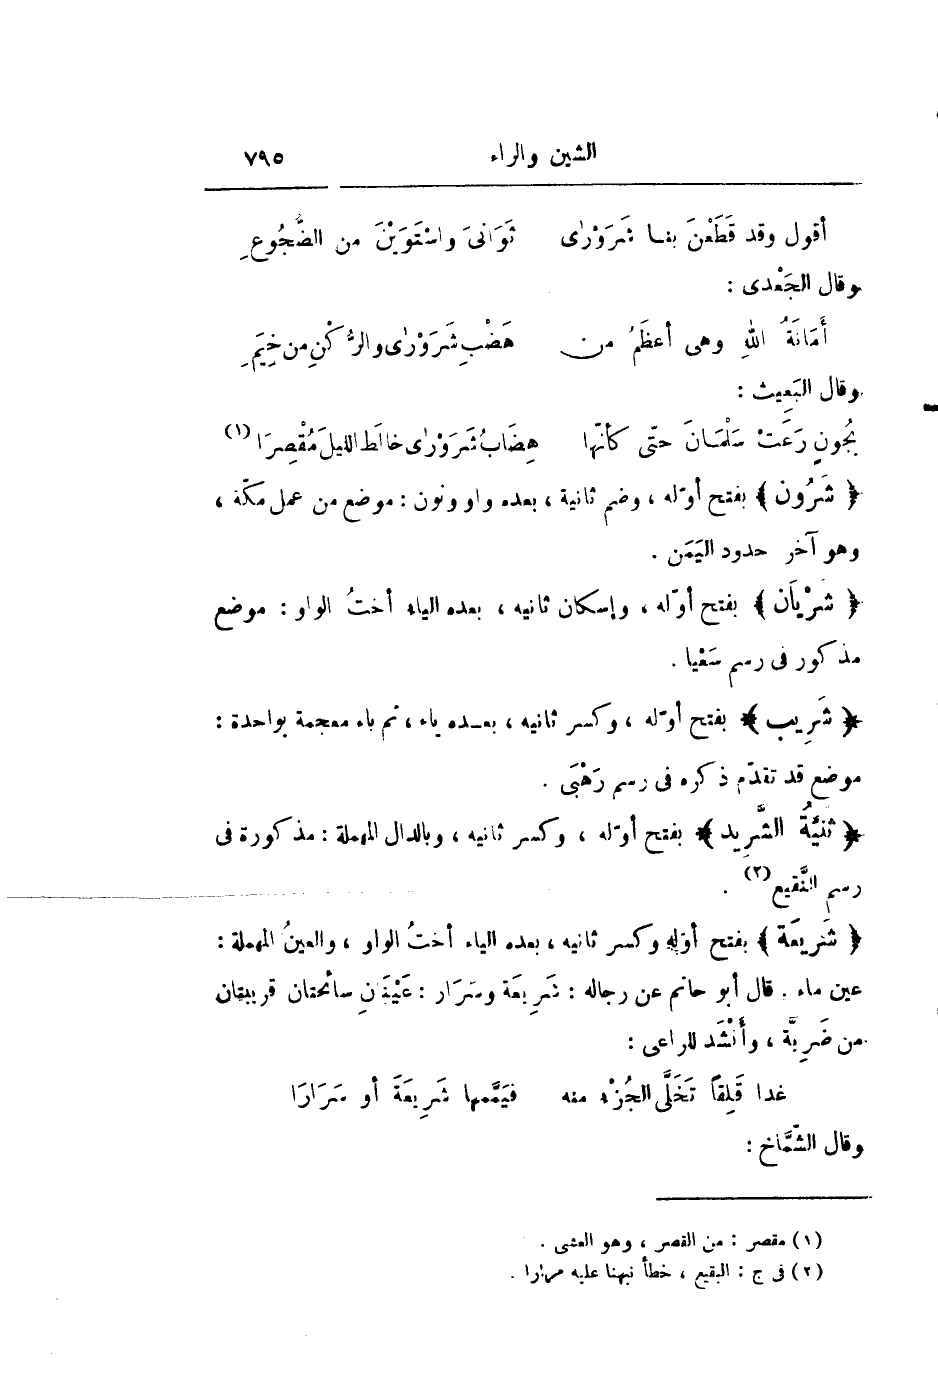 الشين والراء ٧٩٥
أقول وقد قَطَعْنَ بنا شَرَوْرٰى ثَوَانىَ واسْتَوَيْنَ من الضَّجُوعِ
وقال الجَعْدى :
أَمَانَةُ اللهِ وهى أعظَمُ من هَضْبِ شَرَوْرٰى والرُّكْنِ من خِيَمِ
وقال البَعِيث :
بجُونٍ رَعَتْ سَلْمَانَ حتّى كأنّها هِضَابُ شَرَوْرٰى خالَط الليلَ مُقْصِرَا (١)
﴿ شَرُون ﴾ بفتح أوّله ، وضم ثانية ، بعده واو ونون : موضع من عمل مكّة ،
وهو آخر حدود اليَمَن .
﴿ شَرْيَان ﴾ بفتح أوّله ، وإسكان ثانيه ، بعده الياء أختُ الواو : موضع
مذكور فى رسم سَعْيا .
﴿ شَرِيب ﴾ بفتح أوّله ، وكسر ثانيه ، بعده ياء ، ثم باء معجمة بواحدة :
موضع قد تقدّم ذكره فى رسم رَهْبَى .
﴿ ثَنِيَّةُ الشَّرِيد ﴾ بفتح أوّله ، وكسر ثانيه ، وبالدال المهملة : مذكورة فى
رسم النَّقيع (٢) .
﴿ شَرِيعَة ﴾ بفتح أوّله وكسر ثانيه ، بعده الياء أختُ الواو ، والعينُ المهملة :
عين ماء . قال أبو حاتم عن رجاله : شَرِيعَة وسَرَار : عَيْنَانِ سائحتان قريبتان
من ضَرِيَّة ، وأَنْشَد للراعى :
غدا قَلِقًا تَخَلَّى الجُزْء منه فيَمَّمها شَرِيعَةَ أو سَرَارَا
وقال الشَّمَّاخ :
(١) مقصر : من القصر ، وهو العشى .
(٢) فى ج : البقيع ، خطأ نبهنا عليه مرارا .